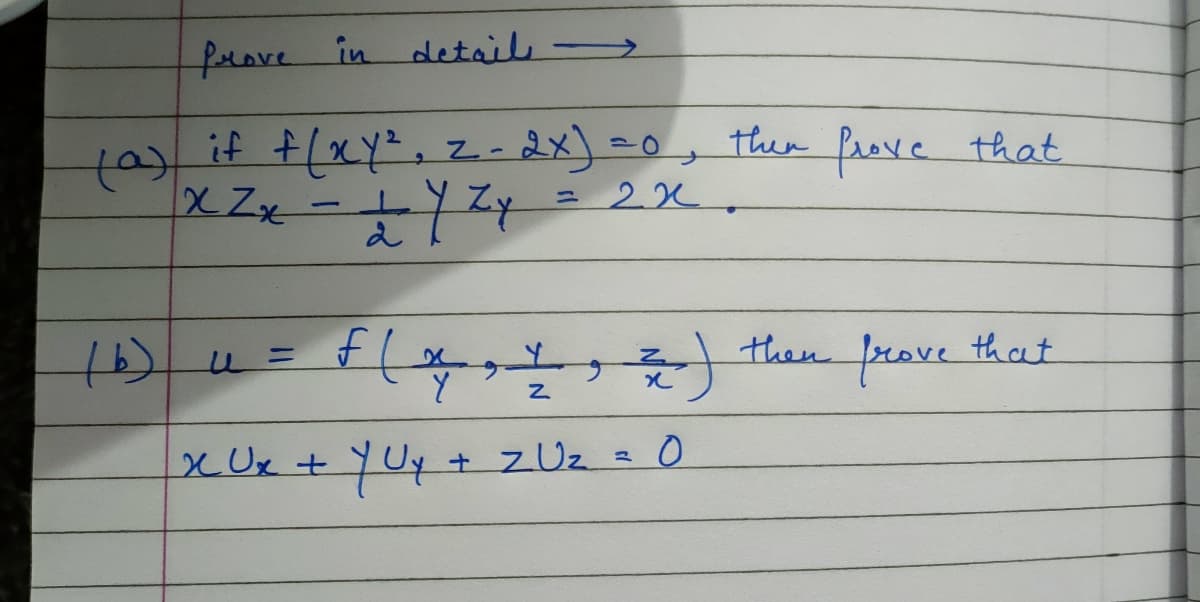 Prove in details →
(a) if f(xy², z - 2x) = 0, then prove that
x Zx - 1/2 y Zy = 2x.
(b) u = f(x/y, y/z, z/x) then prove that
x Ux + y Uy + z Uz = 0